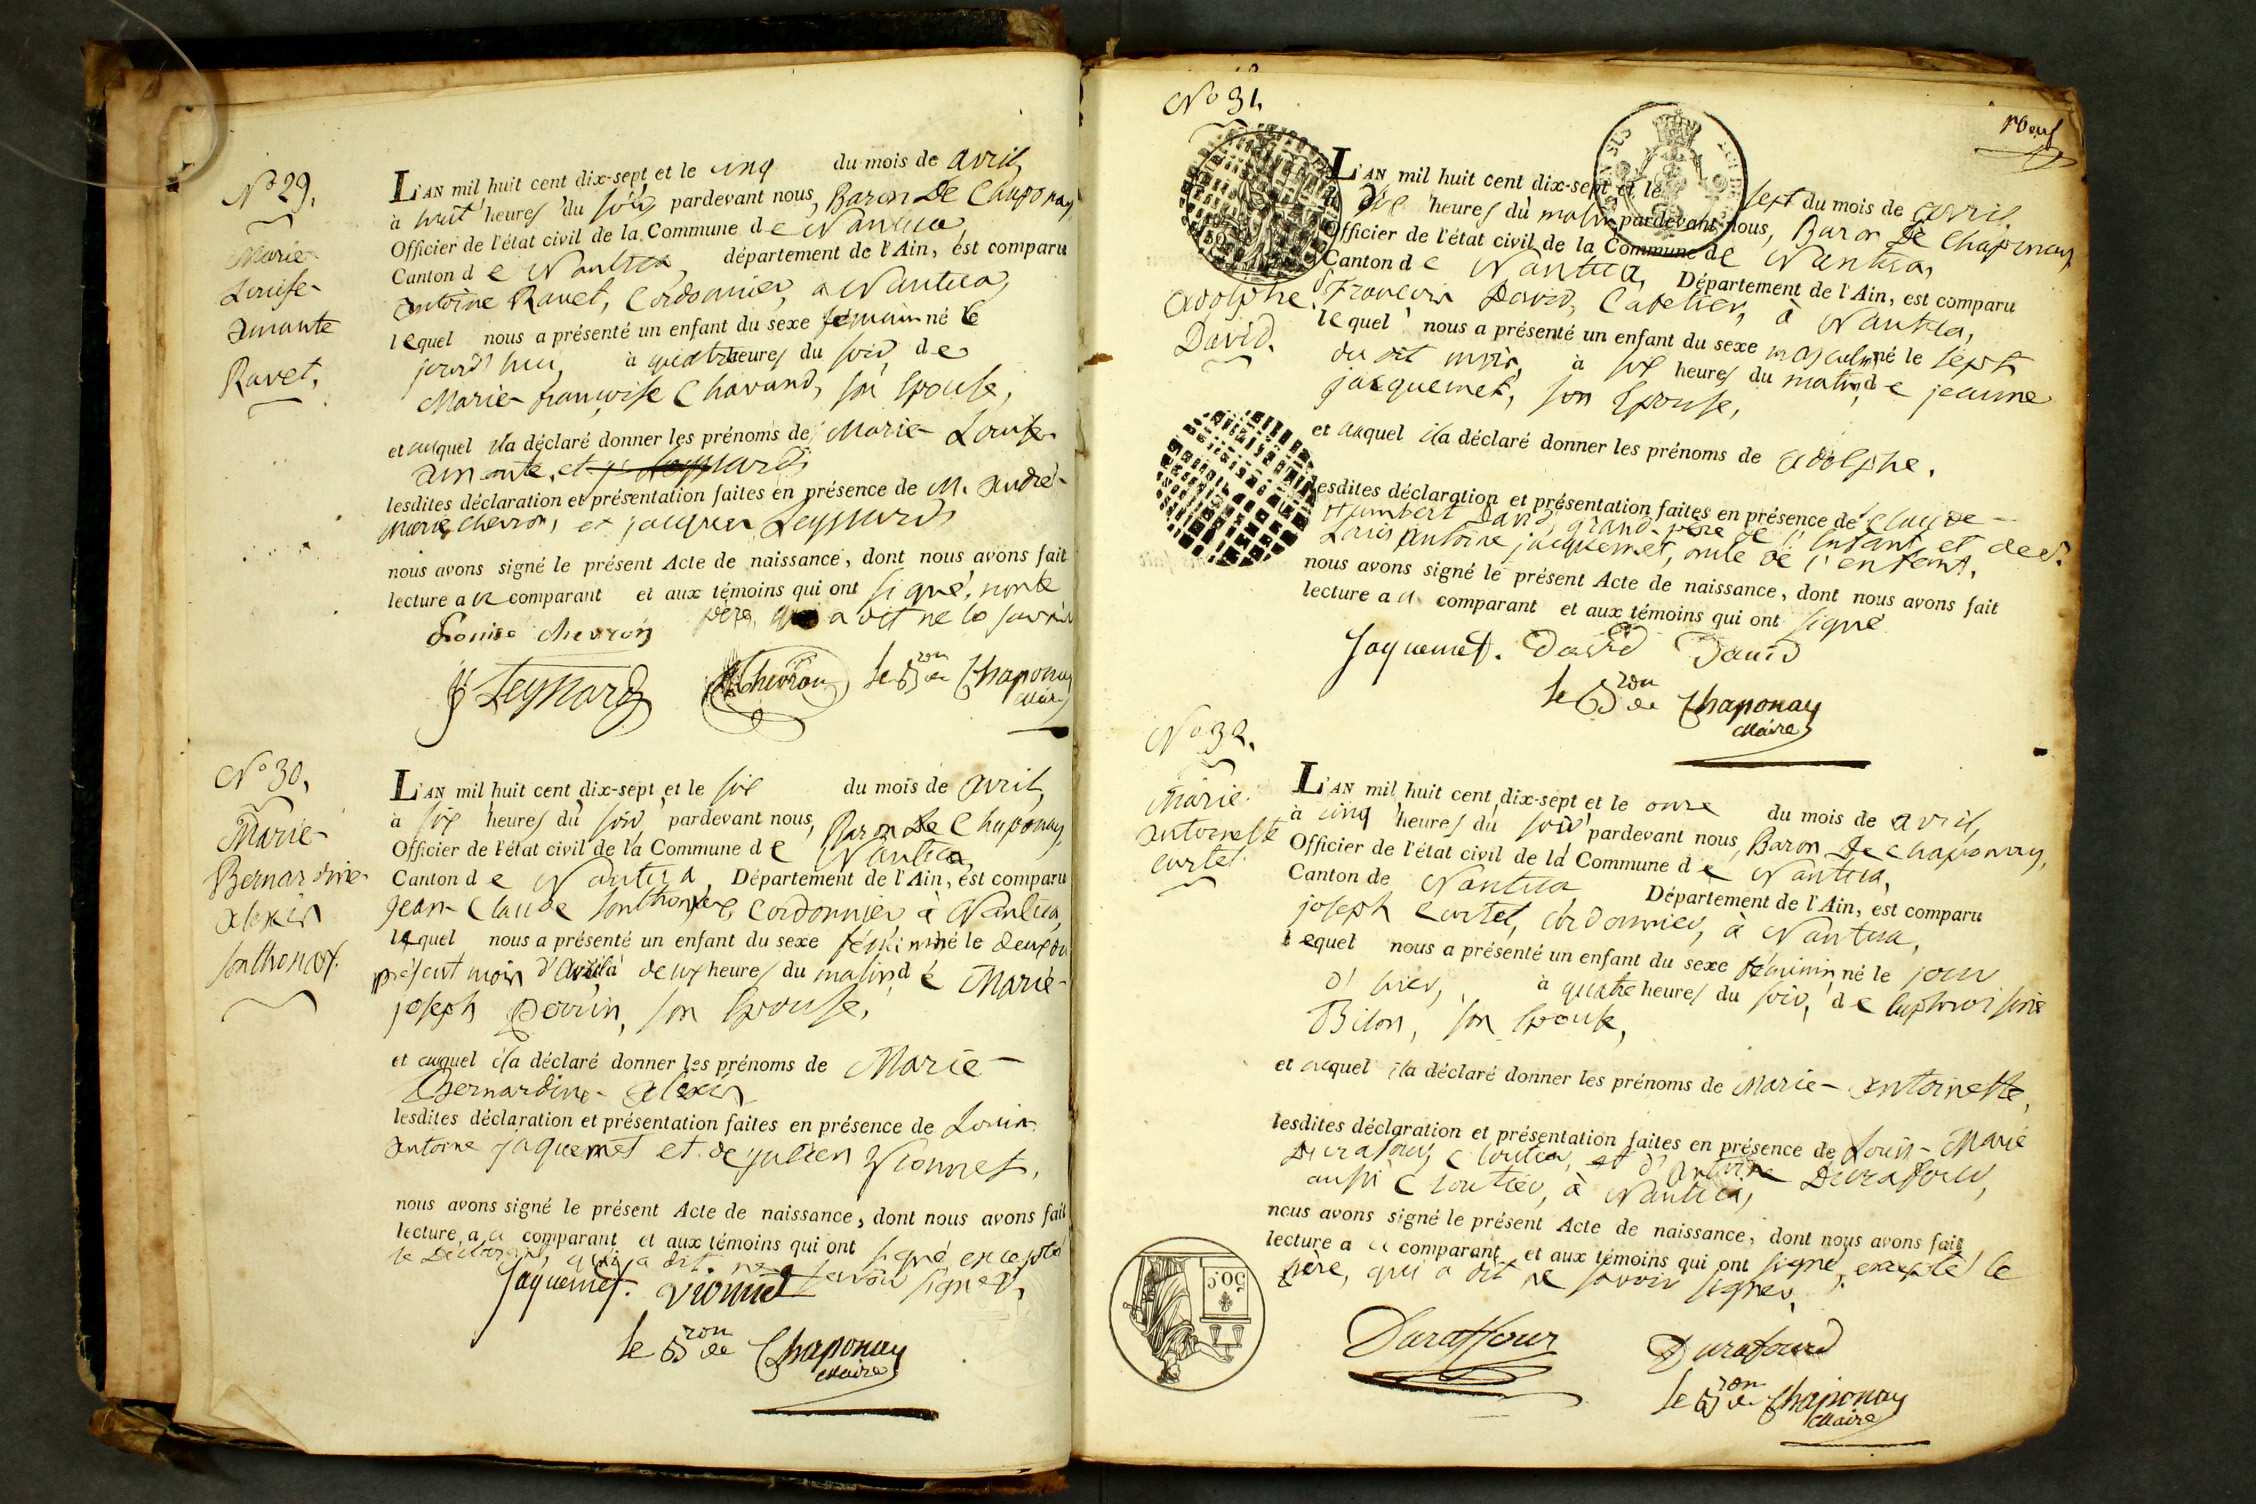 N.o 29.
Marie-
Louise-
amante
Ravet.
L'AN mil huit cent dix-sept et le cinq du mois de avril,
à huit heures du soir pardevant nous, Baron De Chaponay
Officier de l'état civil de la Commune de Nantua,
Canton de Nantua, département de l'Ain, est comparu
antoine Ravet, Cordonnier, à Nantua,
lequel nous a présenté un enfant du sexe féminin né le
jourd'hui, à quatre heures du soir, de
Marie-françoise Chavand, son Epouse,
et auquel il a déclaré donner les prénoms de Marie-Louise-
amante, et
lesdites déclaration et présentation faites en présence de M. andré-
marie chevron, et jacques Leyssard,
nous avons signé le présent Acte de naissance, dont nous avons fait
lecture a ce comparant et aux témoins qui ont signé, non le
père, qui a dit ne le savoir
Louise chevron
JJ Leyssard Chevron le Bron de Chaponay
Maire
N.o 30.
Marie-
Bernardine-
alexis
Sonthonax.
L'AN mil huit cent dix-sept et le six du mois de avril,
à six heures du soir pardevant nous, Baron De Chaponay,
Officier de l'état civil de la Commune de Nantua,
Canton de Nantua, Département de l'Ain, est comparu
Jean-Claude Sonthonax, Cordonnier à Nantua,
lequel nous a présenté un enfant du sexe féminin né le deux du
présent mois d'avril à deux heures du matin, de Marie-
joseph Perrin, son Epouse,
et auquel il a déclaré donner les prénoms de Marie-
Bernardine-alexis
lesdites déclaration et présentation faites en présence de Louis-
antoine jaquemet et de julien Vionnet,
nous avons signé le présent Acte de naissance, dont nous avons fait
lecture a ce comparant et aux témoins qui ont signé excepté
le Déclarant, qui a dit ne savoir signer.
Jaquemet. Vionnet
le Bron de Chaponay
Maire
N.o 31.
adolphe
David.
L'AN mil huit cent dix-sept et le sept du mois de avril,
à dix heures du matin pardevant nous, Baron De Chaponay
Officier de l'état civil de la Commune de Nantua,
Canton de Nantua, Département de l'Ain, est comparu
françois David, Catelier, à Nantua,
lequel nous a présenté un enfant du sexe masculin né le sept
du dit mois, à six heures du matin, de jeanne
jacquemet, son Epouse,
et auquel il a déclaré donner les prénoms de adolphe.
lesdites déclaration et présentation faites en présence de Claude-
Humbert David, grand-père de l'Enfant, et de S.r
Louis Antoine jacquemet, oncle de l'enfant,
nous avons signé le présent Acte de naissance, dont nous avons fait
lecture a ce comparant et aux témoins qui ont signé
Jaquemet. David David
le Bron de Chaponay
Maire
N.o 32.
Marie-
antoinette
curtet.
L'AN mil huit cent dix-sept et le onze du mois de avril,
à cinq heures du soir pardevant nous, Baron De Chaponay,
Officier de l'état civil de la Commune de Nantua,
Canton de Nantua Département de l'Ain, est comparu
joseph Curtet, cordonnier, à Nantua,
lequel nous a présenté un enfant du sexe féminin né le jour
d'hier, à quatre heures du soir, de Euphroisine
Bilon, son Epouse,
et auquel il a déclaré donner les prénoms de Marie-antoinette,
lesdites déclaration et présentation faites en présence de Louis-Marie
Durafour, cloutier, et d'antoine Durafour,
aussi Cloutier, à Nantua,
nous avons signé le présent Acte de naissance, dont nous avons fait
lecture a ce comparant et aux témoins qui ont signé, excepté le
père, qui a dit ne savoir signer.
50 c
Duraffour Durafourd
le Bron de Chaponay
Maire